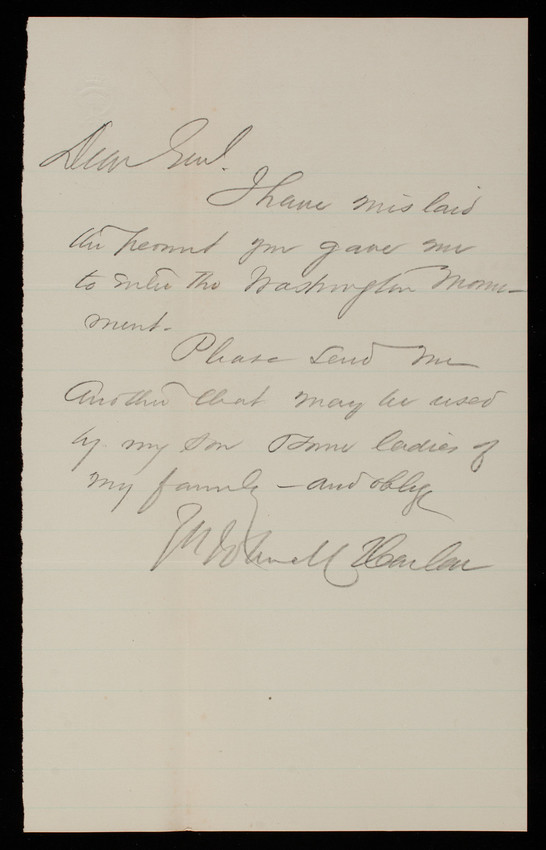 Dear Genl.
I have mislaid
the permit you gave me
to enter the Washington Monu-
ment.
Please send me
another that may be used
by my son & some ladies of
my family - and oblige
John M Harlan